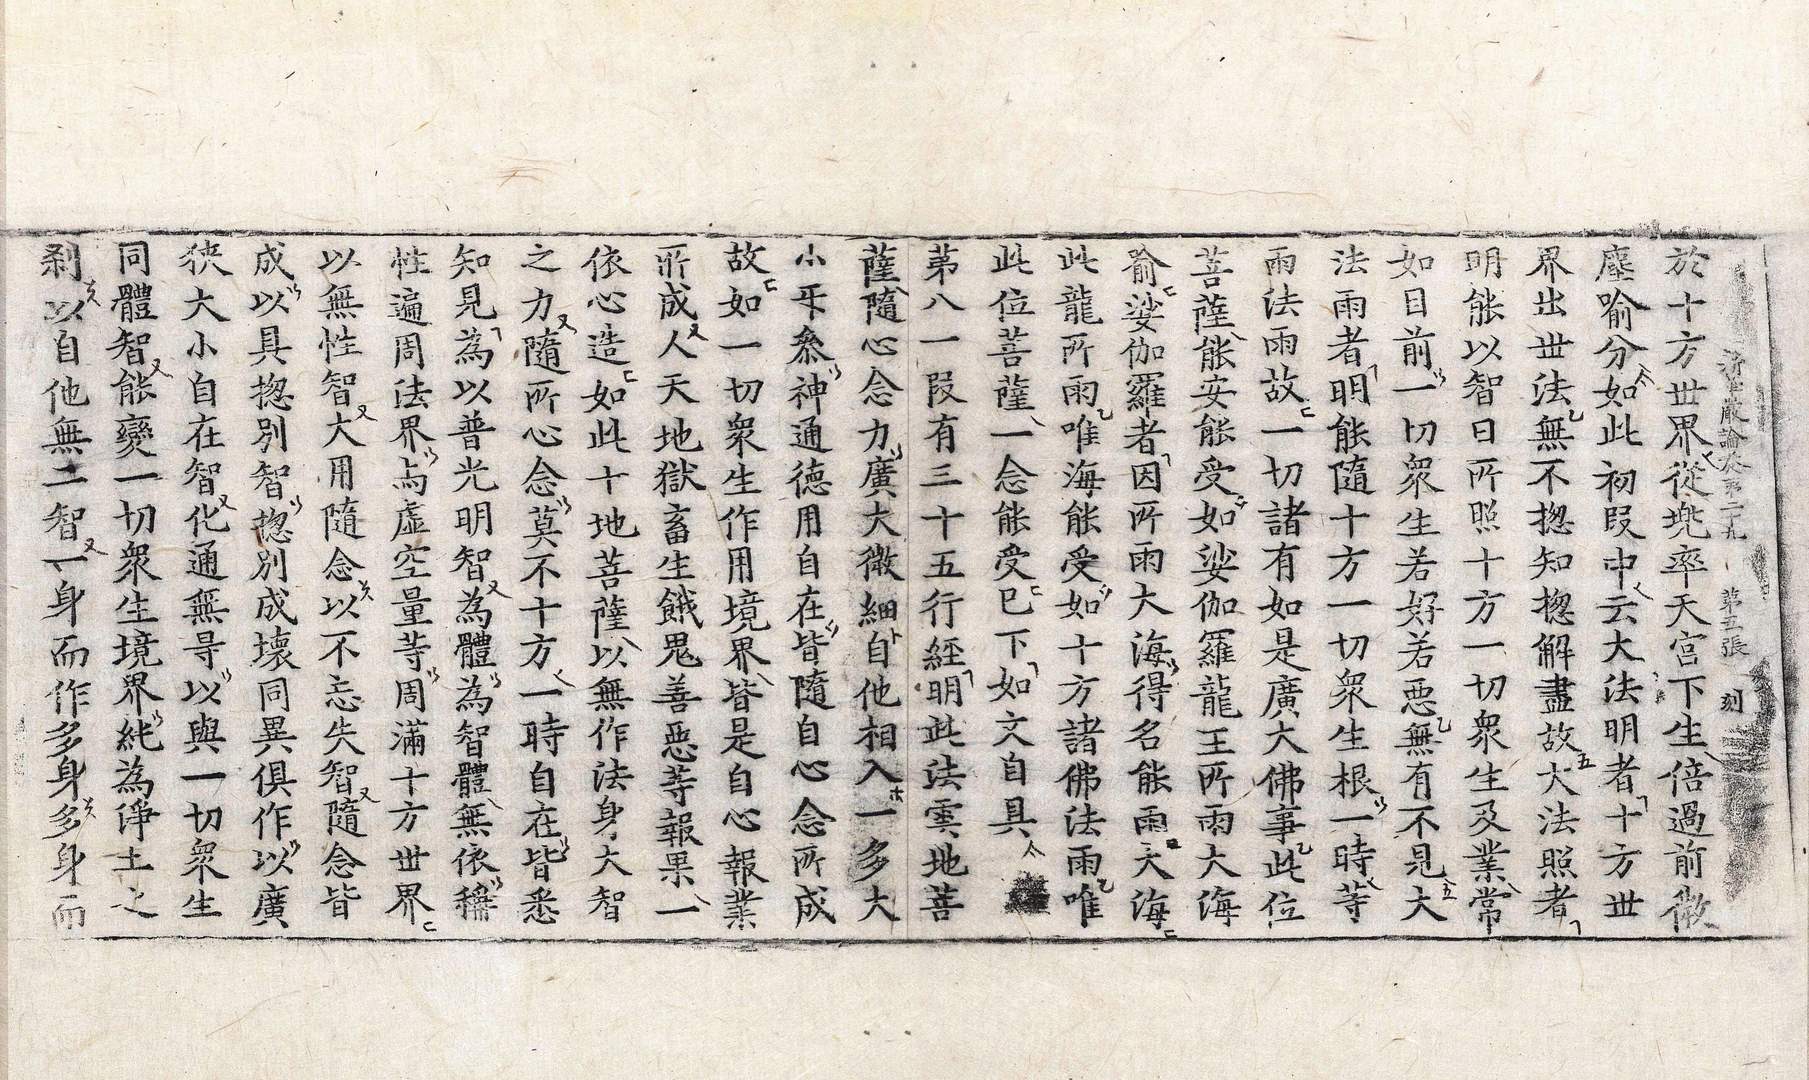 於十方世界從兜率天宮下生倍過前微
塵喻分如此初段中云大法明者十方世
界出世法無不揔知揔解盡故大法照者
明能以智日所照十方一切衆生及業常
如目前一切衆生若好若惡無有不見大
法雨者明能隨十方一切衆生根一時等
雨法雨故一切諸有如是廣大佛事此位
菩薩能安能受如娑伽羅龍王所雨大海
喻娑伽羅者因所雨大海得名能雨大海
此龍所雨唯海能受如十方諸佛法雨唯
此位菩薩一念能受已下如文自具
苐八一段有三十五行經明此法雲地菩
薩隨心念力廣大微細自他相入一多大
小㸦叅神通德用自在皆隨自心念所成
故如一切衆生作用境界皆是自心報業
所成人天地獄畜生餓鬼善惡等報果一
依心造如此十地菩薩以無作法身大智
之力隨所心念莫不十方一時自在皆悉
知見為以普光明智為體為智體無依稱
性遍周法界与虛空量等周滿十方世界
以無性智大用隨念以不忘失智隨念皆
成以具揔別智揔別成壞同異俱作以廣
狹大小自在智化通無㝵以與一切衆生
同體智能變一切衆生境界純為淨土之
刹以自他無二智一身而作多身多身而